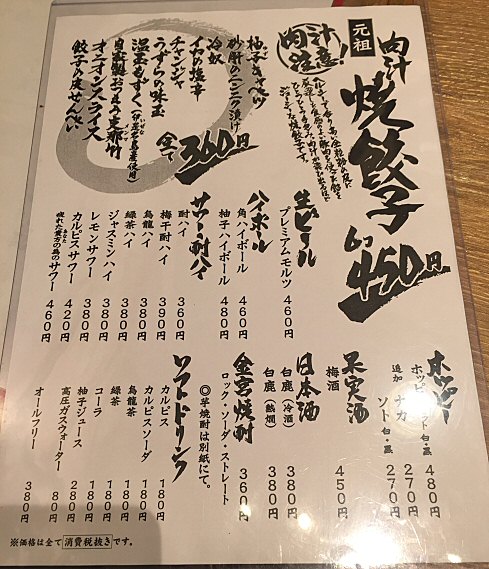 元祖
肉汁焼餃子
6コ 450円
肉汁注意!
柚子キャベツ
砂肝のニンニク漬け
冷奴
イカの塩辛
チャンジャ
うずらの味玉
温玉もずく
オニオンスライス
餃子の皮せんべい
全て 360円
生ビール
プレミアムモルツ 460円
ハイボール
角ハイボール 460円
柚子ハイボール 480円
サワー・酎ハイ
酎ハイ 360円
梅干酎ハイ 390円
烏龍ハイ 380円
緑茶ハイ 380円
ジャスミンハイ 380円
レモンサワー 380円
カルピスサワー 420円
疲れた貴方の為のサワー 460円
ホッピー
ホッピーセット 白・黒 480円
追加 ナカ 270円
ソト 白・黒 270円
果実酒
梅酒 450円
日本酒
白鹿(冷酒) 380円
白鹿(熱燗) 380円
金宮焼酎
ロック・ソーダ・ストレート 360円
◎芋焼酎は別紙にて。
ソフトドリンク
カルピス 180円
カルピスソーダ 180円
烏龍茶 180円
緑茶 180円
コーラ 180円
柚子ジュース 280円
高圧ガスウォーター 80円
オールフリー 380円
※価格は全て消費税抜きです。